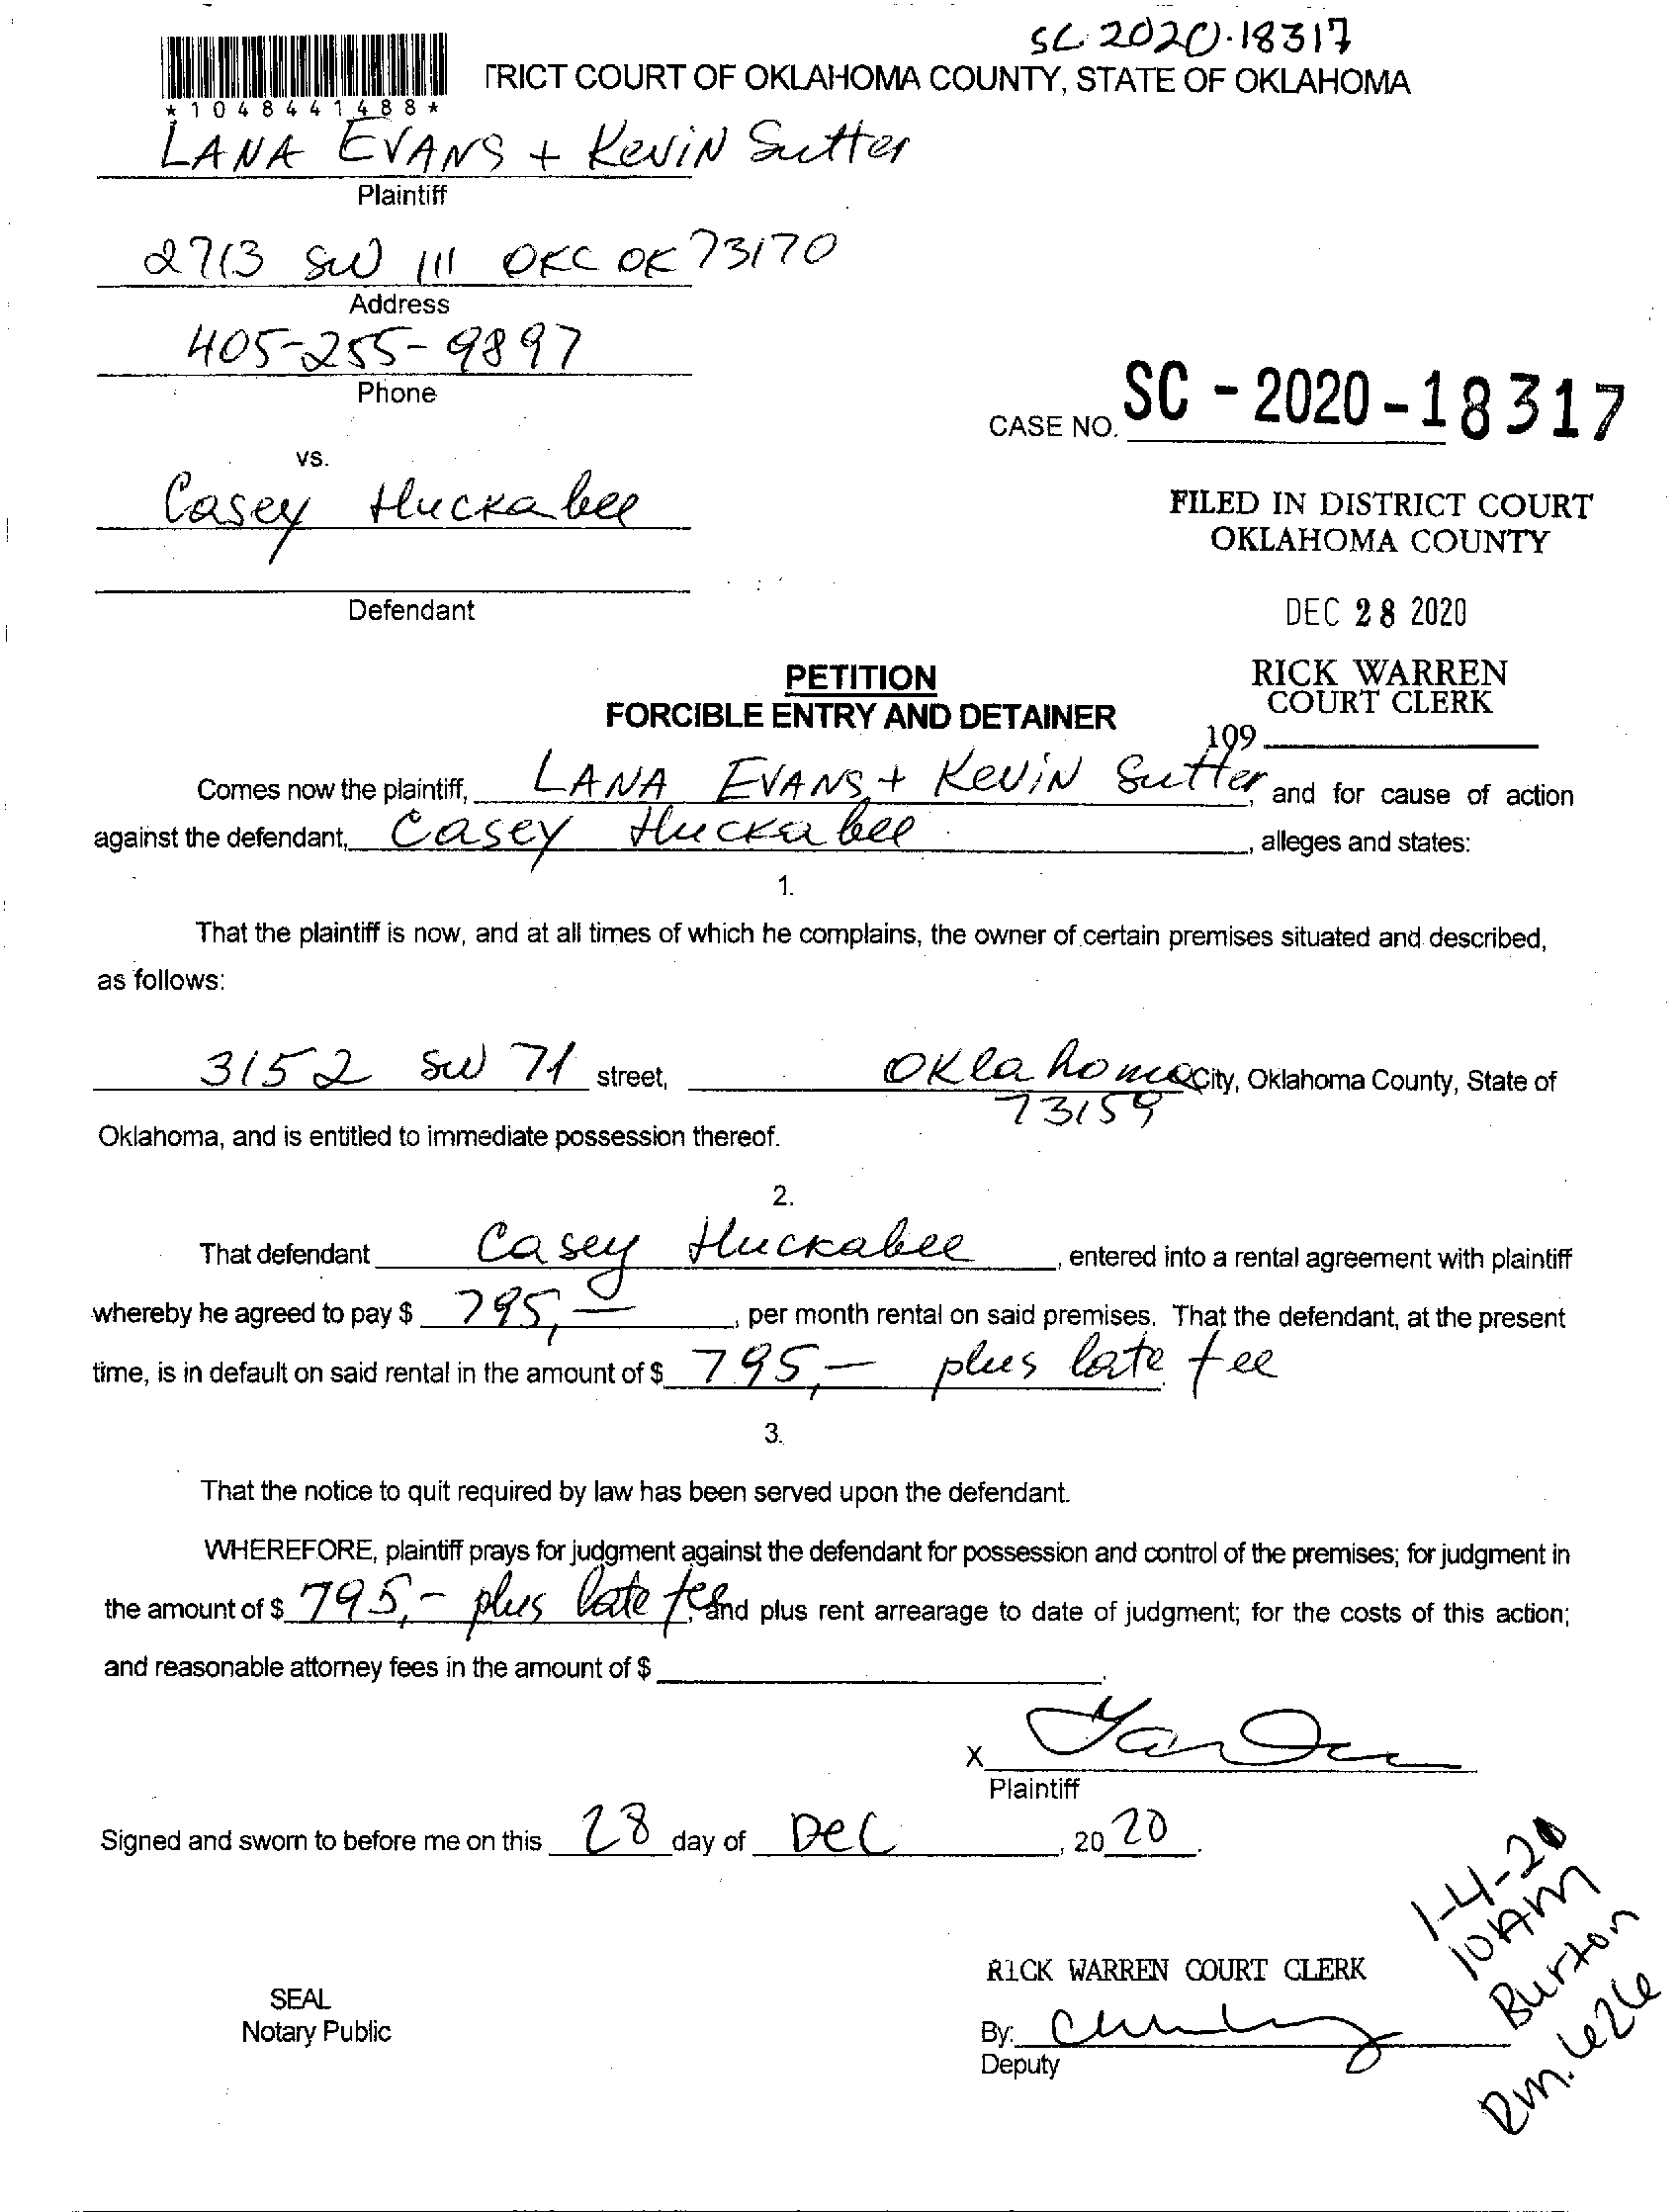 SC 2020-18317
TRICT COURT OF OKLAHOMA COUNTY, STATE OF OKLAHOMA
*1048441488*
LANA EVANS + KEViN Sutter
Plaintiff
2713 SW 111 OKC OK 73170
Address
405-255-9897
Phone
CASE NO. SC - 2020-18317
vs.
Casey Huckabee
FILED IN DISTRICT COURT
OKLAHOMA COUNTY
Defendant
DEC 28 2020
PETITION
FORCIBLE ENTRY AND DETAINER
RICK WARREN
COURT CLERK
109
Comes now the plaintiff, LANA EVANS + KEViN Sutter, and for cause of action
against the defendant, Casey Huckabee, alleges and states:
1.
That the plaintiff is now, and at all times of which he complains, the owner of certain premises situated and described,
as follows:
3152 SW 71 street, Oklahoma City, Oklahoma County, State of
73159
Oklahoma, and is entitled to immediate possession thereof.
2.
That defendant Casey Huckabee, entered into a rental agreement with plaintiff
whereby he agreed to pay $ 795,-, per month rental on said premises. That the defendant, at the present
time, is in default on said rental in the amount of $ 795,- plus late fee
3.
That the notice to quit required by law has been served upon the defendant.
WHEREFORE, plaintiff prays for judgment against the defendant for possession and control of the premises; for judgment in
the amount of $ 795,- plus late fee, and plus rent arrearage to date of judgment; for the costs of this action;
and reasonable attorney fees in the amount of $ .
X
Plaintiff
Signed and sworn to before me on this 28 day of Dec, 2020.
1-4-20
10AM
Burton
Rm. 626
RICK WARREN COURT CLERK
SEAL
Notary Public
By:
Deputy